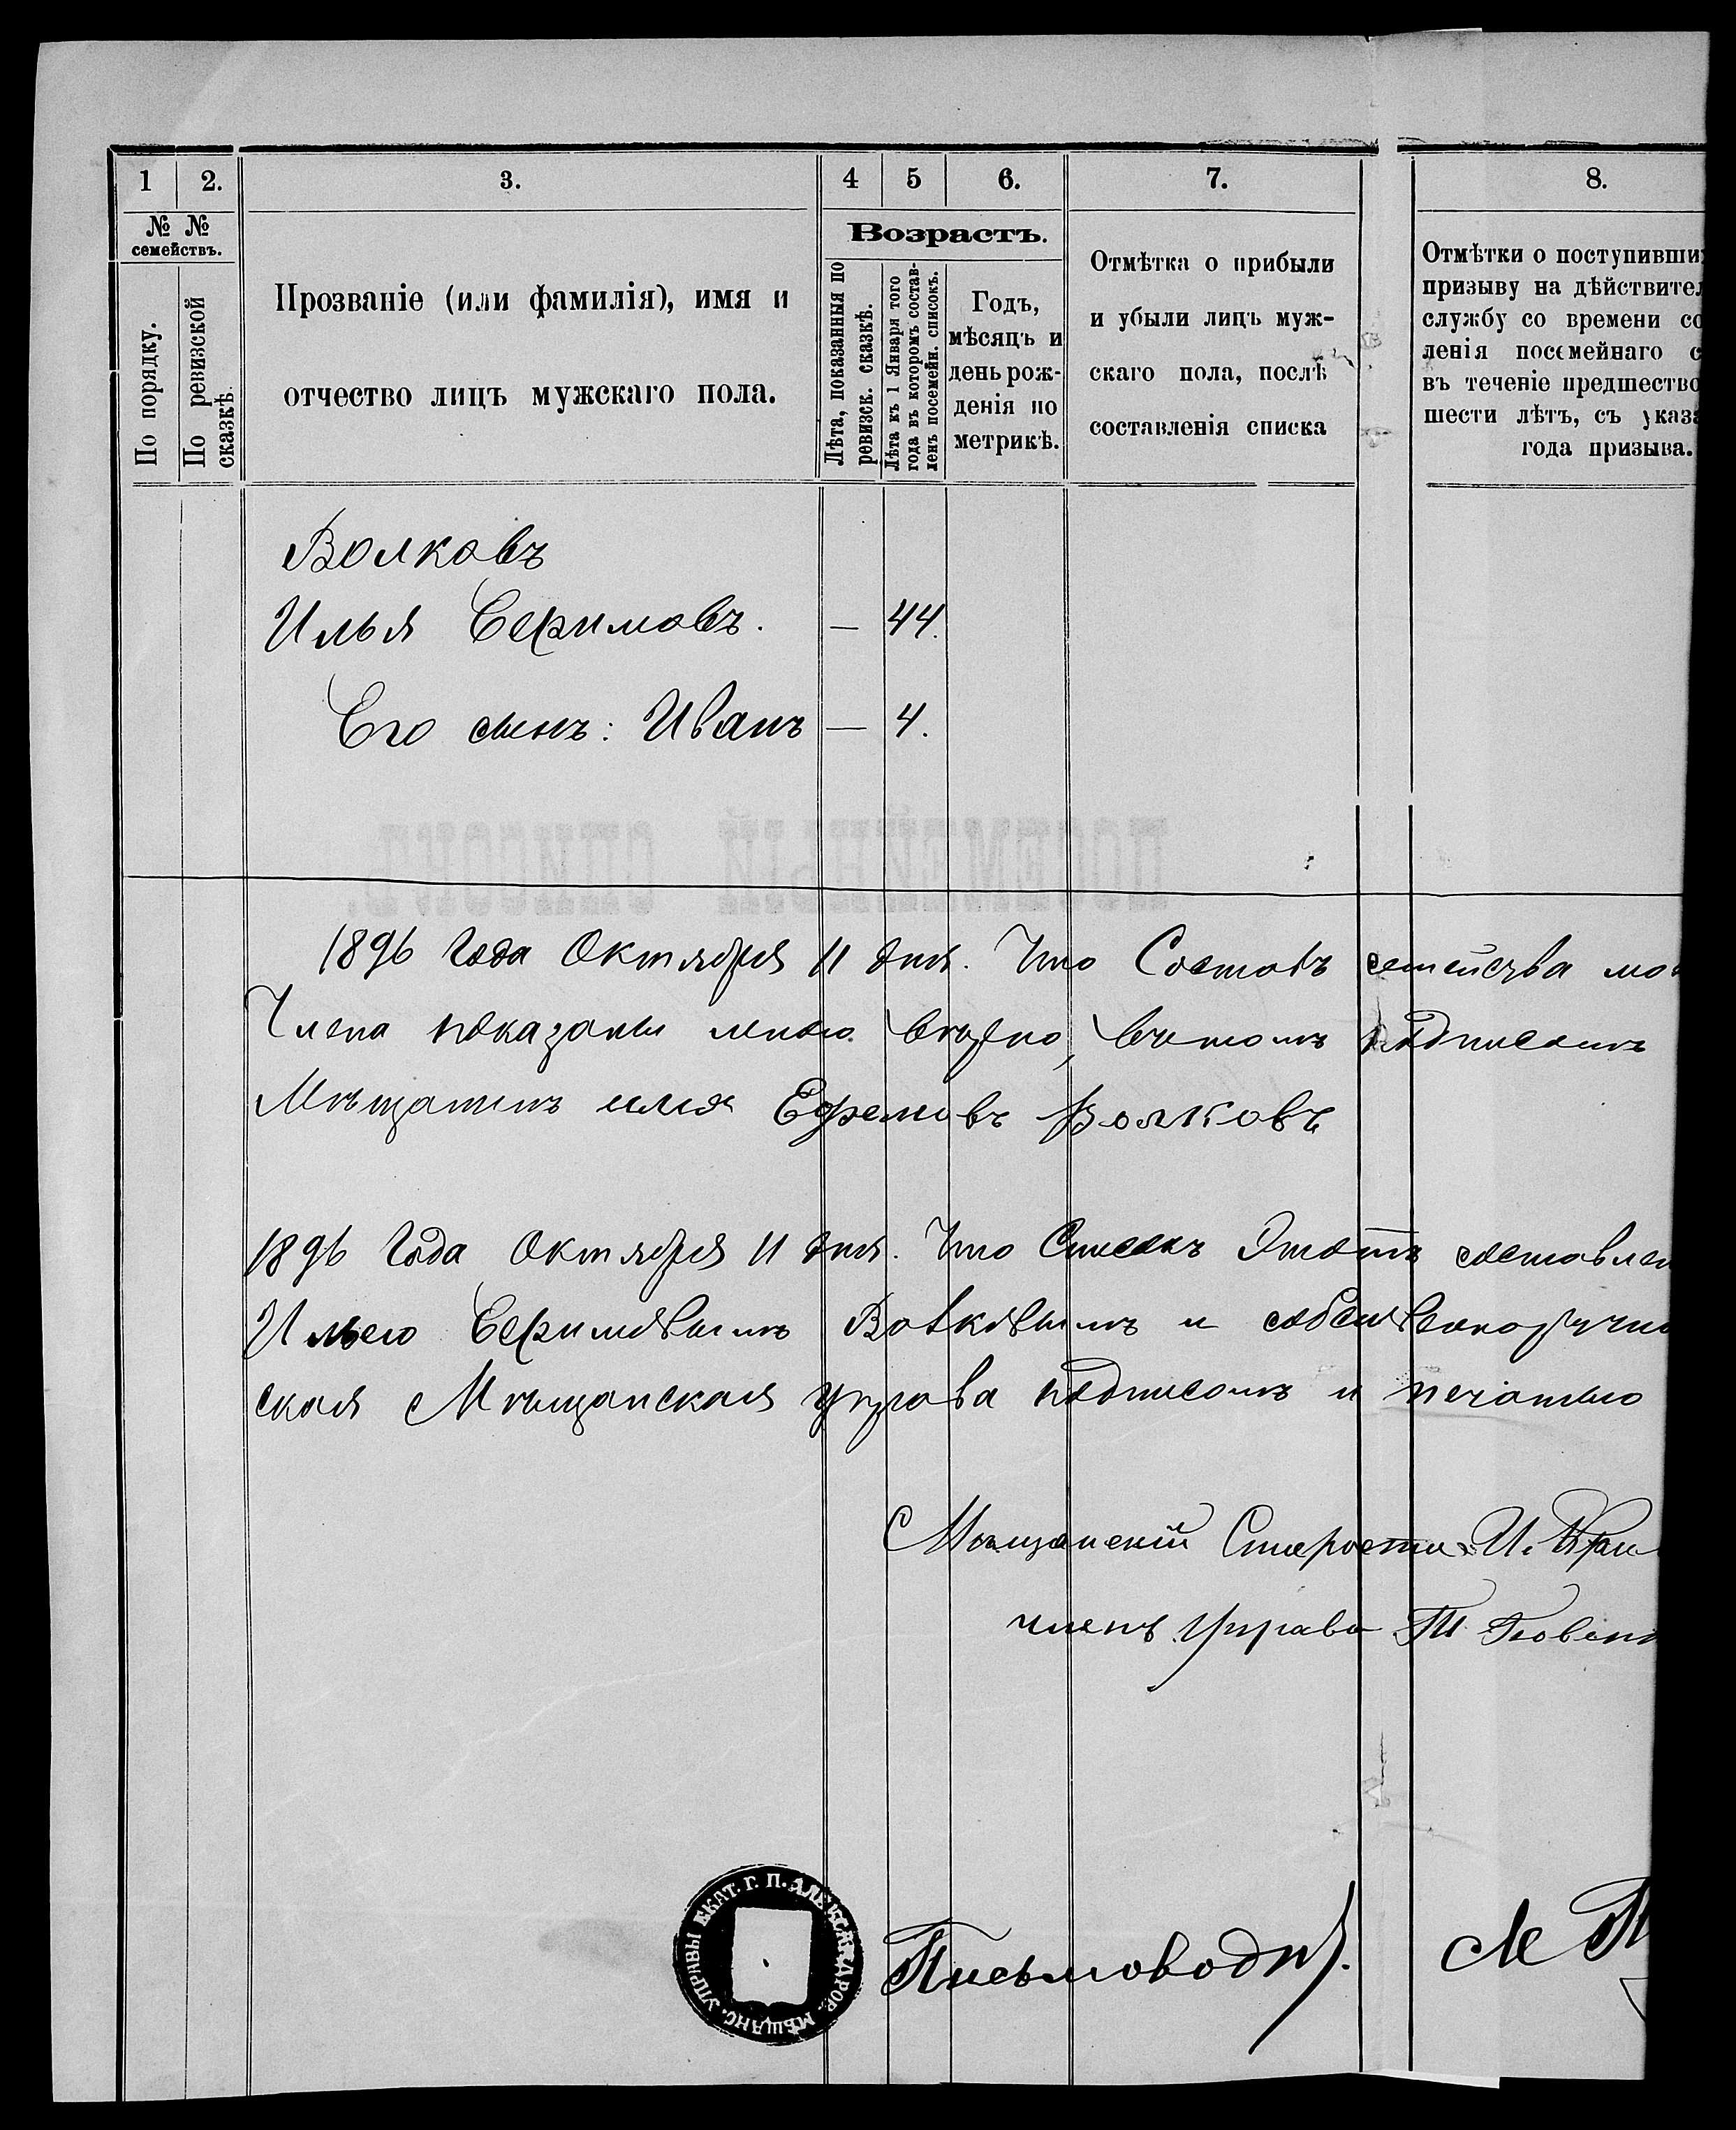 1 2. 3. 4 5 6. 7. 8.
№ № семействъ.
По порядку.
По ревизской сказкѣ.
Прозваніе (или фамилія), имя и
отчество лицъ мужскаго пола.
Возрастъ.
Лѣта, показанныя по
ревизск. сказкѣ.
Лѣта къ 1 Января того
года въ которомъ состав-
ленъ посемейн. списокъ.
Годъ,
мѣсяцъ и
день рож-
денія по
метрикѣ.
Отмѣтка о прибыли
и убыли лицъ муж-
скаго пола, послѣ
составленія списка
Отмѣтки о поступивши
призыву на дѣйствител
службу со времени со
ленія посемейнаго с
въ теченіе предшество
шести лѣтъ, съ указа
года призыва.
Волковъ
Илья Ефимовъ. — 44.
Его сынъ: Иванъ — 4.
ПОСЕМЕЙНЫЙ СПИСОКЪ.
1896 Года Октября 11 дня. Что Составъ семейства мо
Члена показаны мною вѣрно, въ томъ подписомъ
Мѣщанинъ илия Ефремовъ Волковъ
1896 Года Октября 11 дня. Что Списокъ Этотъ составлен
Ильею Ефимовымъ Волковымъ и собственноручно
ская Мѣщанская управа подписомъ и печатью
Мѣщанскій Староста И.
членъ Управы П.
Письмовод М П
ЕКАТ. Г. П. АЛЕКСАНДРОВ. МѢЩАНС. УПРАВЫ